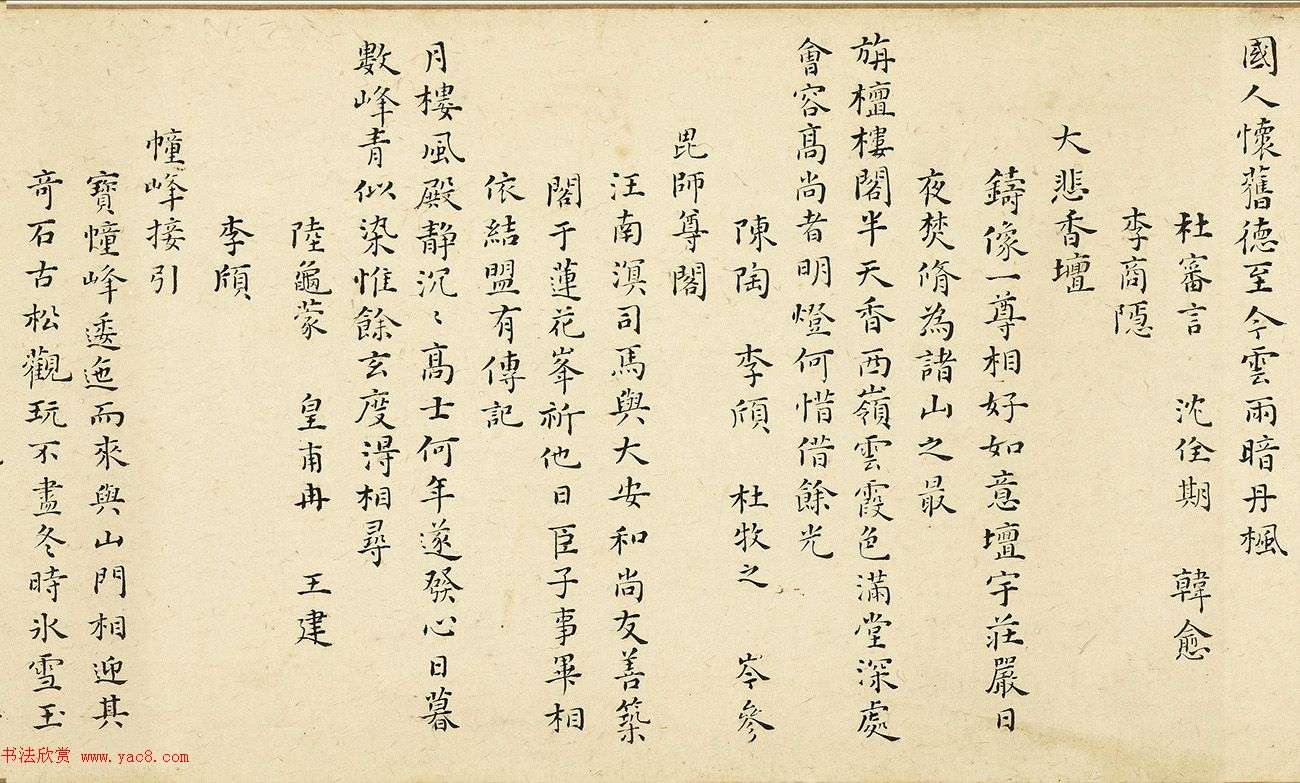 國人懷舊德至今雲雨暗丹楓
杜審言 沈佺期 韓愈
李商隱
大悲香壇
鑄像一尊相好如意壇宇莊嚴日
夜焚脩為諸山之最
旃檀樓閣半天香西嶺雲霞色滿堂深處
會容高尚者明燈何惜借餘光
陳陶 李頎 杜牧之 岑參
毘師尊閣
汪南溟司馬與大安和尚友善築
閣于蓮花峯祈他日臣子事畢相
依結盟有傳記
月樓風殿靜沉〻高士何年遂發心日暮
數峰青似染惟餘玄度得相尋
陸龜蒙 皇甫冉 王建
李頎
幢峰接引
寶幢峰逶迤而來與山門相迎其
奇石古松觀玩不盡冬時冰雪玉
书法欣赏 www.yac8.com